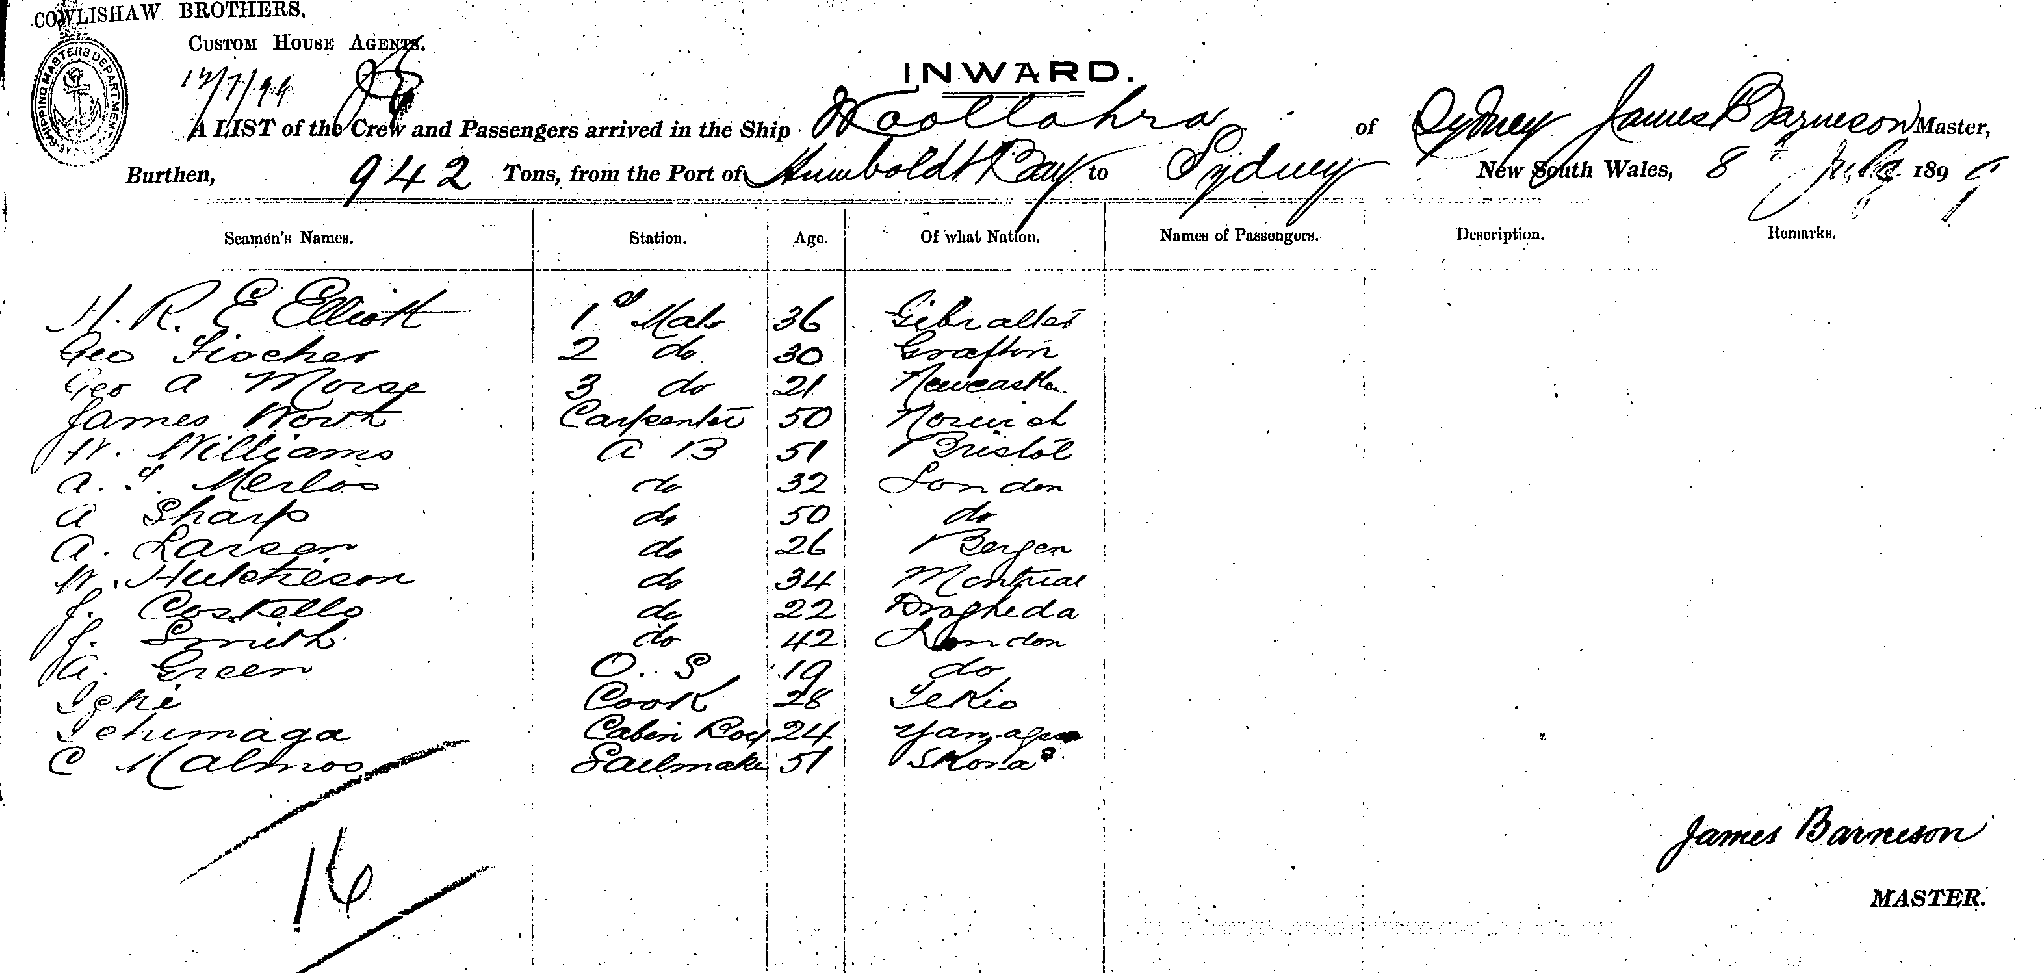 COWLISHAW BROTHERS.
CUSTOM HOUSE AGENTS.
SHIPPING MASTERS DEPARTMENT
12/7/99
INWARD.
A LIST of the Crew and Passengers arrived in the Ship Woollahra of Sydney James Barneson Master,
Burthen, 942 Tons, from the Port of Humboldt Bay to Sydney New South Wales, 8th July 1899
Seamen's Names. Station. Age. Of what Nation. Names of Passengers. Description. Remarks.
H. R. E Elliott 1st Mate 36 Gibralter
Geo Fischer 2 do 30 Grafton
Geo A Morse 3 do 21 Newcastle
James Wort Carpenter 50 Norwich
W. Williams A B 51 Bristol
A. Merlos do 32 London
A Sharp do 50 do
A. Larsen do 26 Bergen
W. Hutcheson do 34 Montreal
J. Costello do 22 Drogheda
J. Smith do 42 London
A. Green O. S 19 do
Cook 28 Tekio
Ichimaga Cabin Boy 24
C Malmos Sailmaker 51 Skona
16
James Barneson
MASTER.